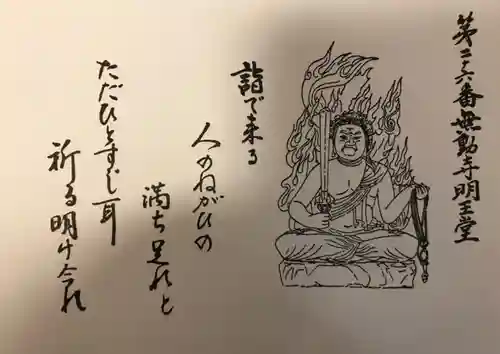 第二六番無動寺明王堂
詣で来る
人のねがひの
満ち足れと
ただひとすじ耳
祈る明け今れ